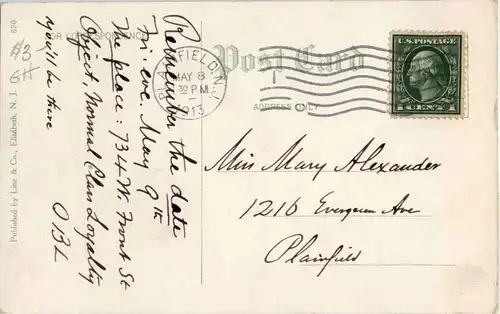 690
Published by Line & Co., Elizabeth, N. J.
FOR CORRESPONDENCE
Post Card
ADDRESS ONLY
PLAINFIELD, N.J.
MAY 8
30 PM
1913
U.S. POSTAGE
1 CENT 1
#3
6#
Remember the date
Fri. eve. May 9th
The place: 734 W. Front St
Object. Normal Class Loyalty
you'll be there
O B L
Miss Mary Alexander
1216 Evergreen Ave
Plainfield